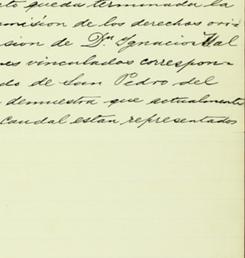 to queda terminada la
misión de los derechos
sión de Dn Ignacio
es vinculados correspon-
do de San Pedro del
demuestra que actualmente
caudal estan representados